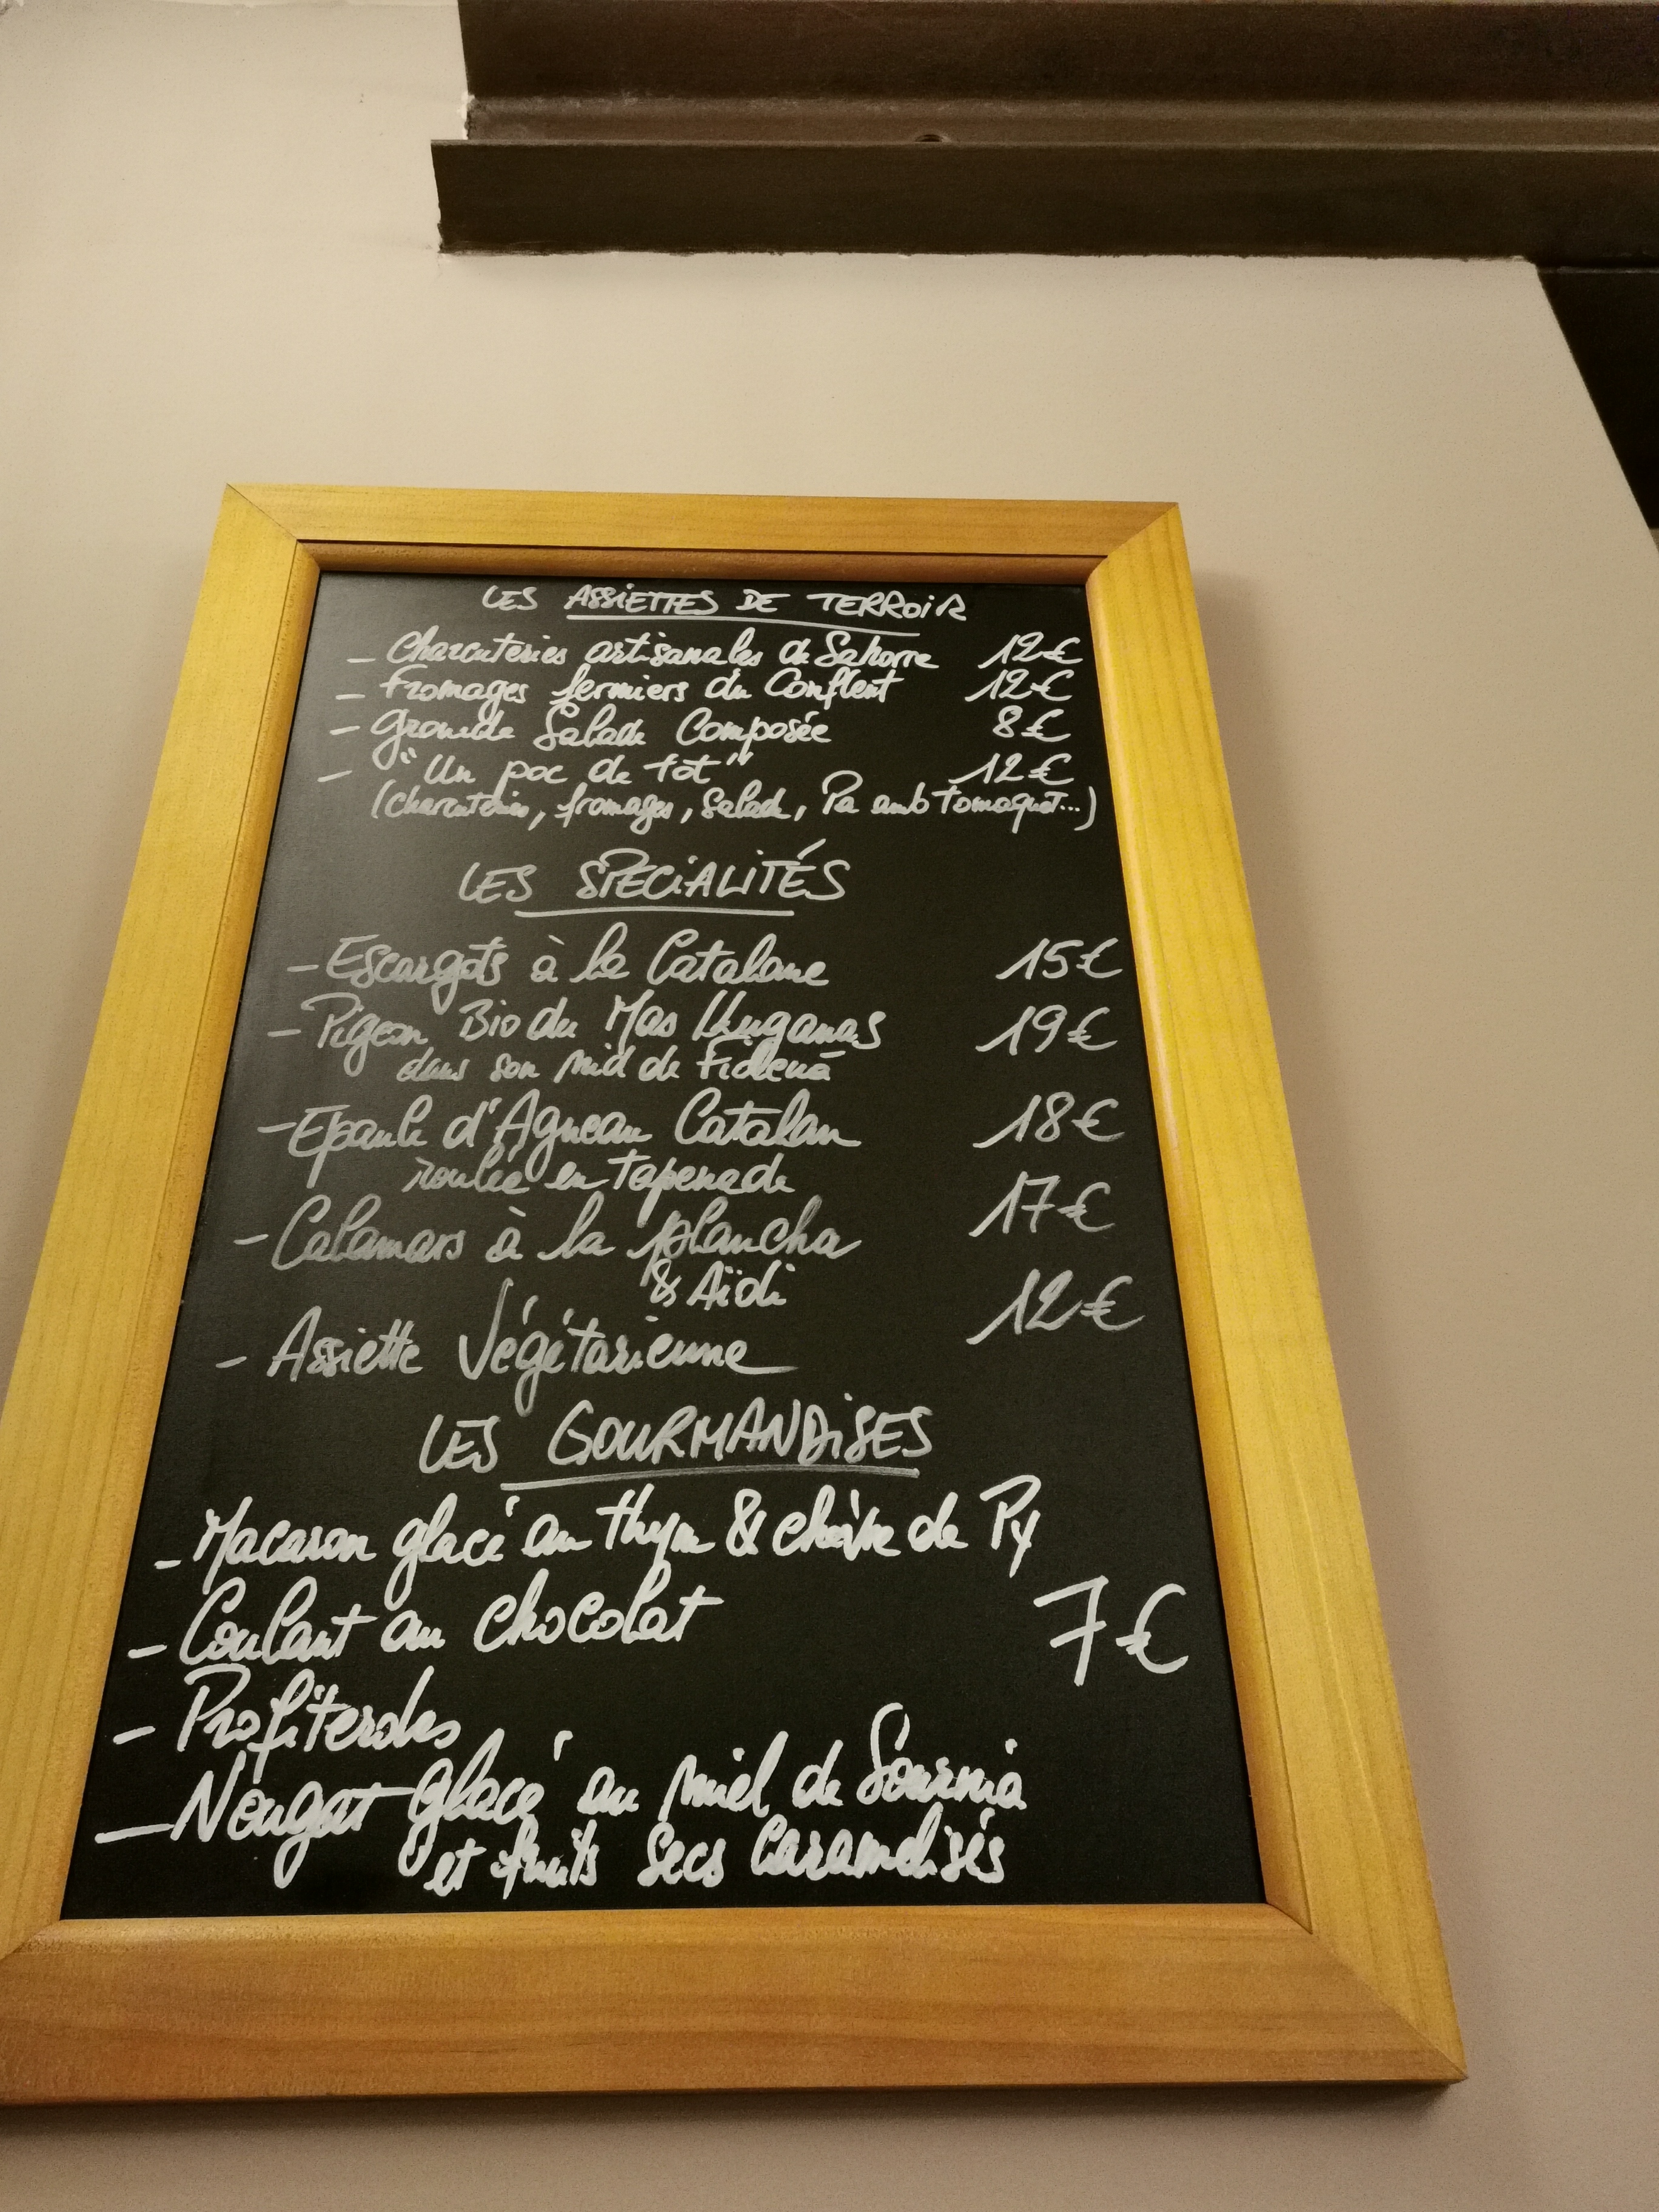 LES ASSIETTES DE TERROIR
- Charcuteries artisanales de Sahorre 12€
- Fromages fermiers du Conflent 12€
- Grande Salade Composée 8€
- "Un poc de tot" 12€
(charcuteries, fromages, salade, Pa amb tomaquet...)
LES SPÉCIALITÉS
- Escargots à la Catalane 15€
- Pigeon Bio du Mas Lluganas 19€
dans son nid de Fideuà
- Epaule d'Agneau Catalan 18€
roulée en tapenade
- Calamars à la plancha 17€
& Aïoli
- Assiette Végétarienne 12€
LES GOURMANDISES
- Macaron glacé au thym & chèvre de Py
- Coulant au chocolat 7€
- Profiteroles
- Nougat glacé au miel de Sournia
et fruits secs caramélisés